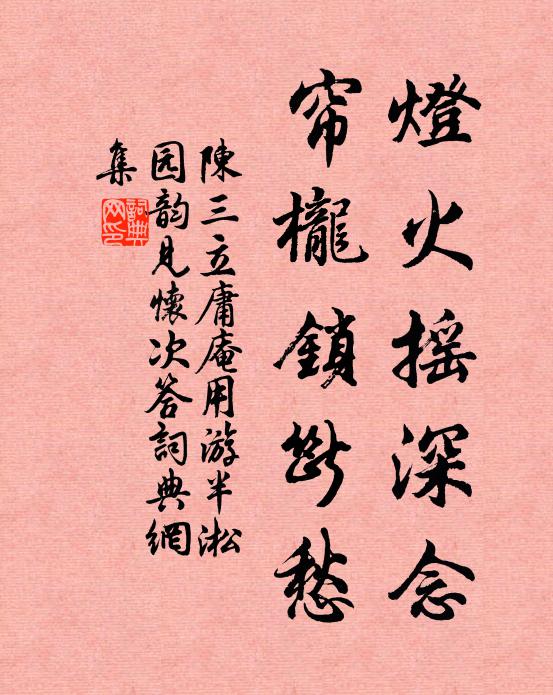 燈火摇深念
帘櫳鎖斷愁
陳三立庸庵用游半淞
园韵見懷次答詞典網
集
詞典
网印